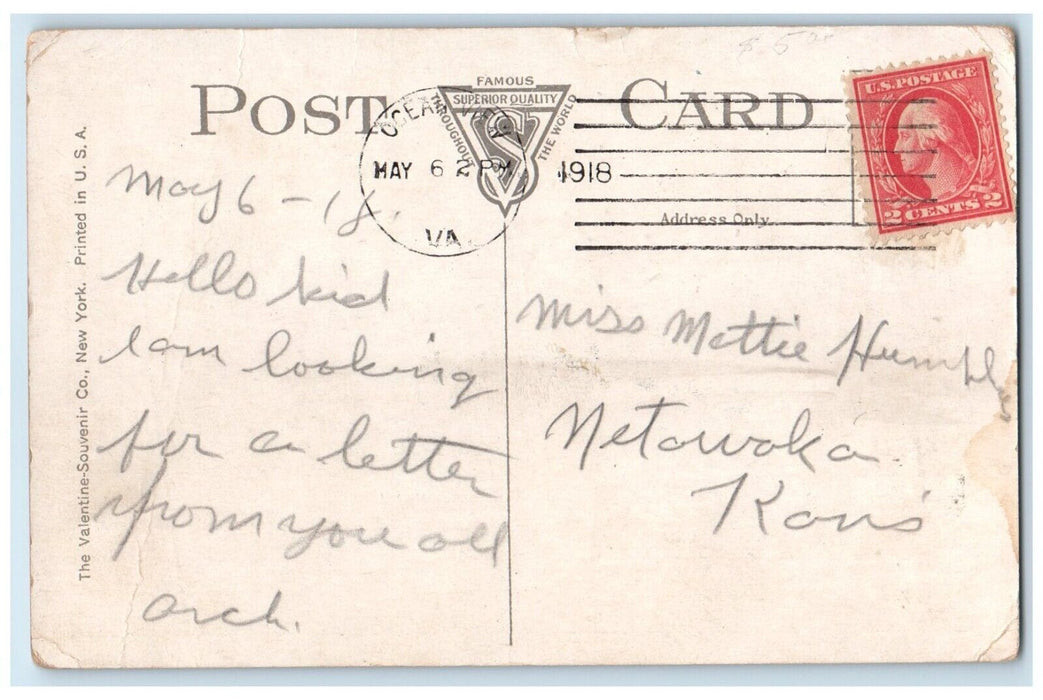 $ 5.00
POST CARD
FAMOUS
SUPERIOR QUALITY
THROUGHOUT THE WORLD
OCEAN VIEW
MAY 6 2 PM 1918
VA.
U.S. POSTAGE
2 CENTS 2
Address Only.
The Valentine-Souvenir Co., New York. Printed in U. S. A.
May 6 - 18.
Hello kid
I am looking
for a letter
from you all
Arch.
Miss Mattie
Netawaka
Kans